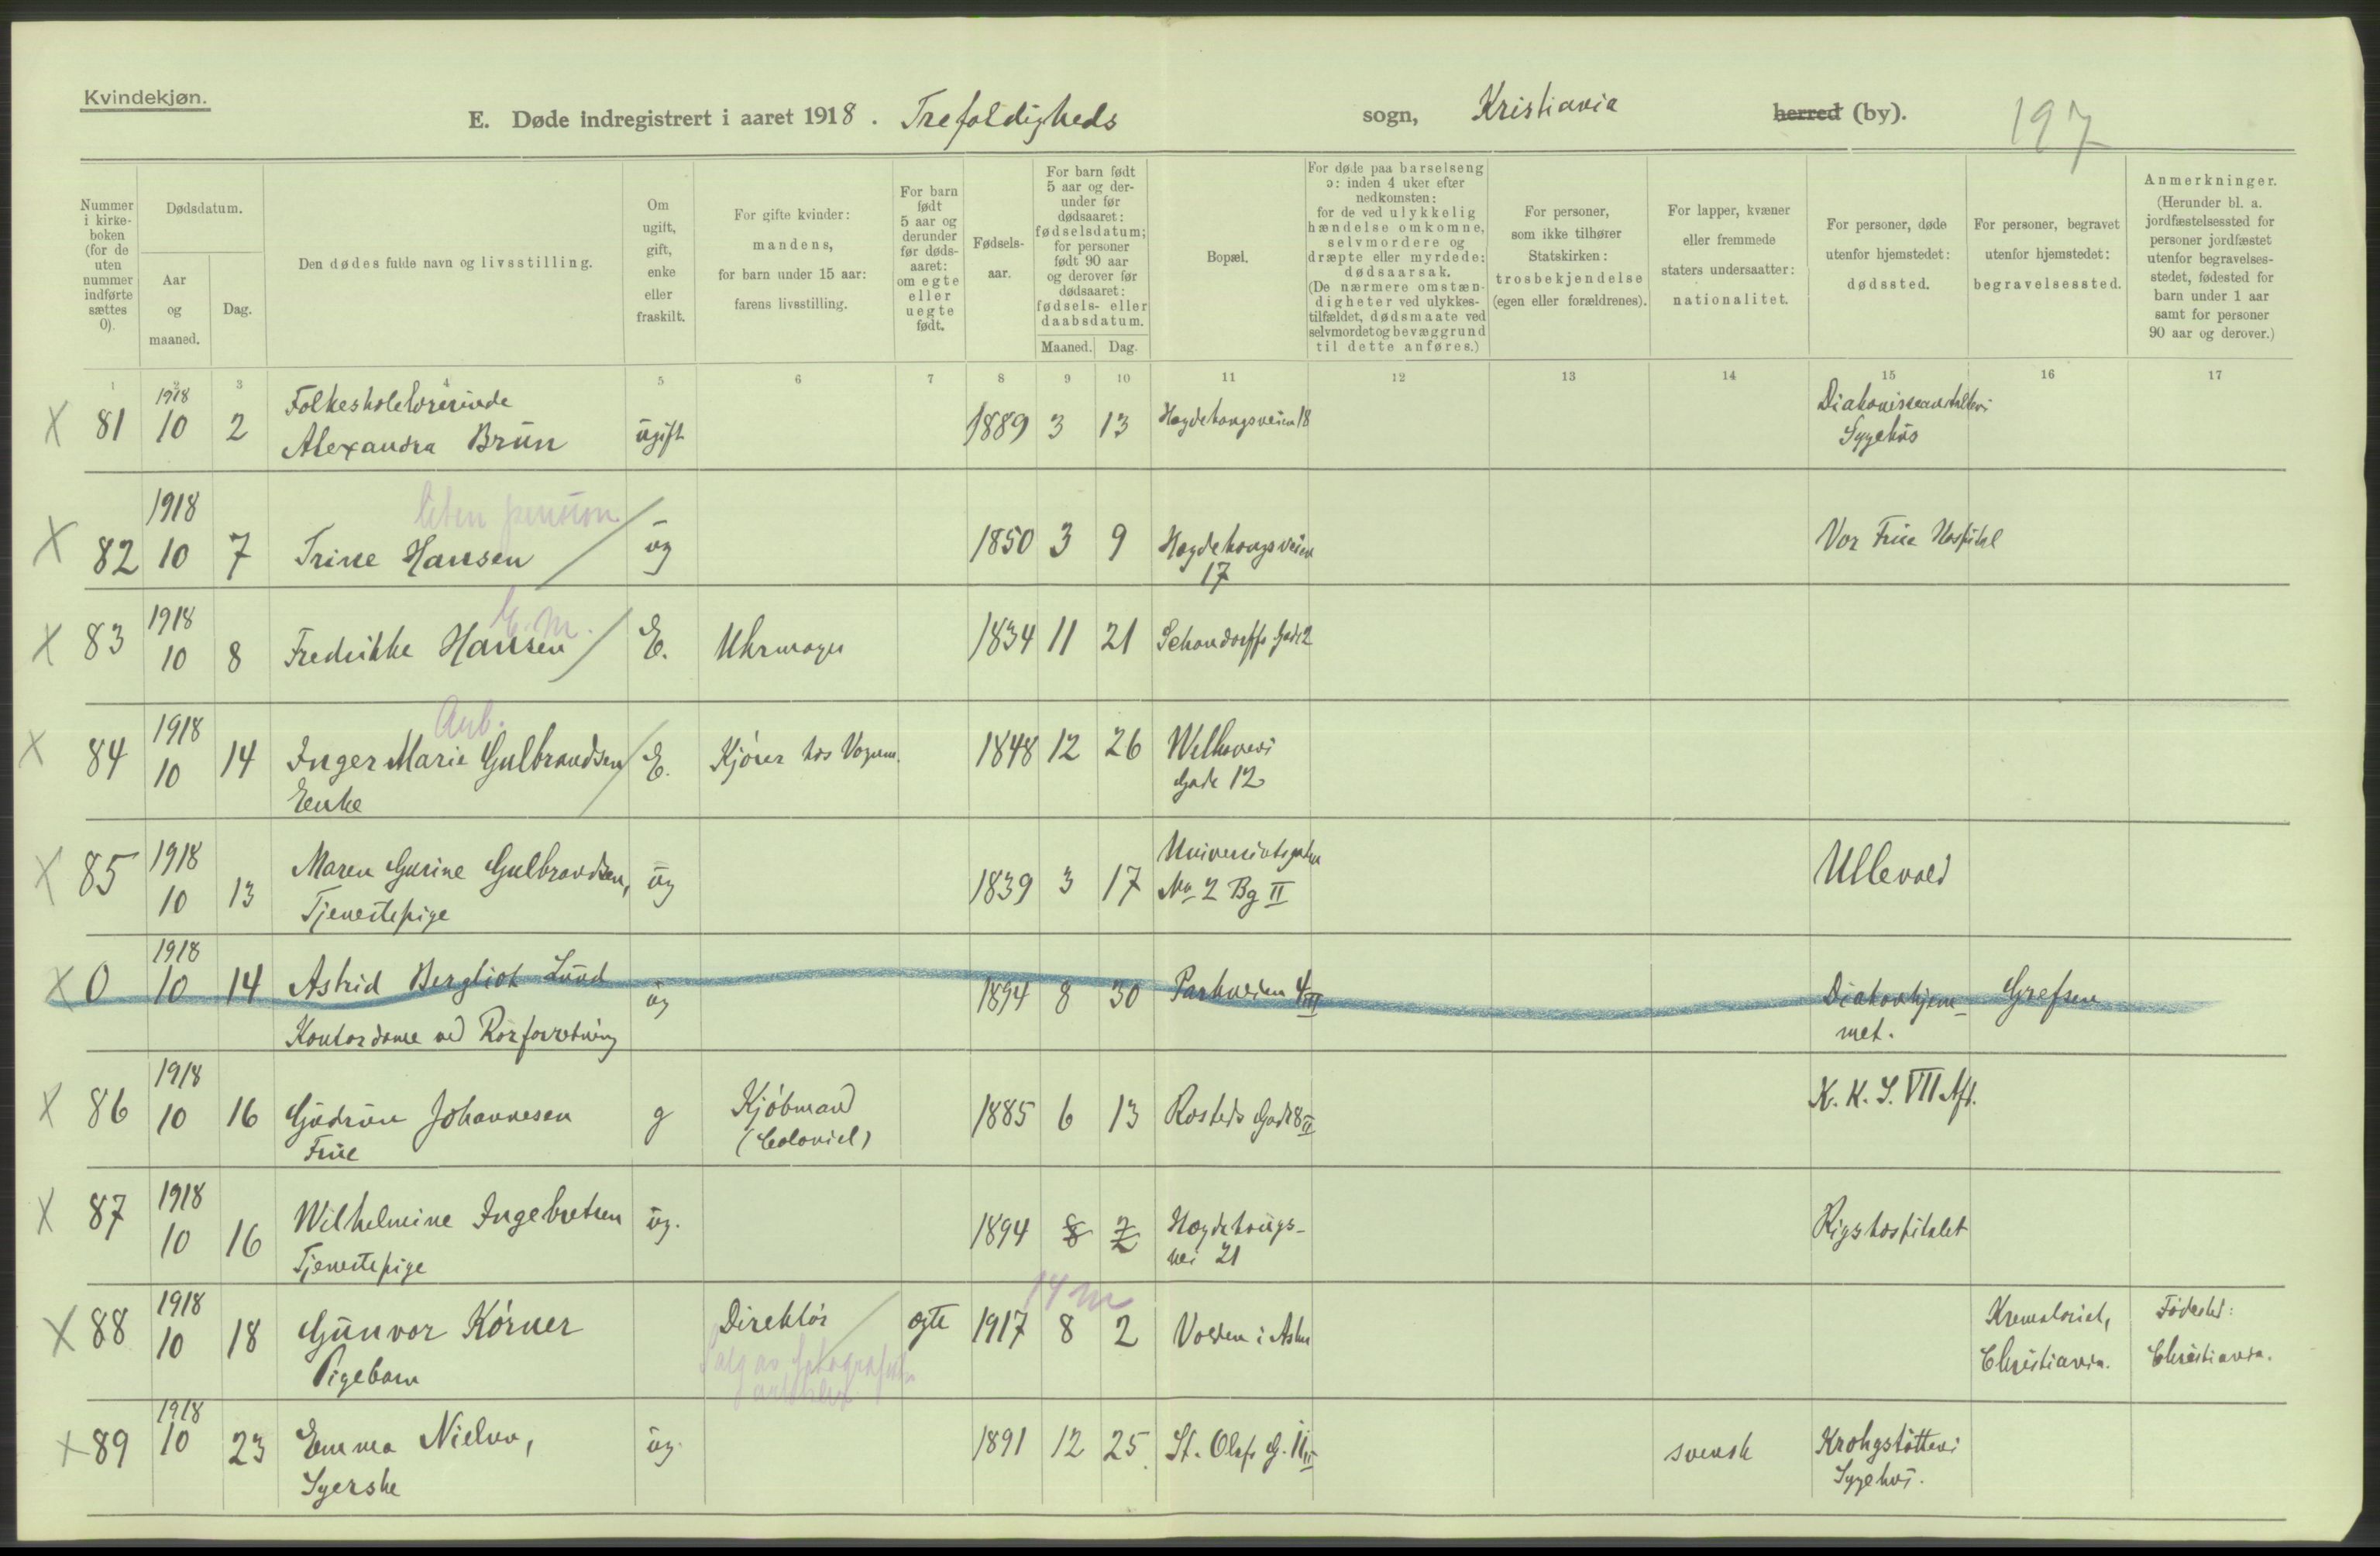 Kvindekjøn.
E. Døde indregistrert i aaret 1918. Trefoldigheds sogn, Kristiania herred (by).
197
Nummer i kirkeboken (for de uten nummer indførte sættes 0).
Dødsdatum.
Aar og maaned.
Dag.
Den dødes fulde navn og livsstilling.
Om ugift, gift, enke eller fraskilt.
For gifte kvinder: mandens, for barn under 15 aar: farens livsstilling.
For barn født 5 aar og derunder før dødsaaret: om egte eller uegte født.
Fødselsaar.
For barn født 5 aar og derunder før dødsaaret: fødselsdatum; for personer født 90 aar og derover før dødsaaret: fødsels- eller daabsdatum.
Maaned. Dag.
Bopæl.
For døde paa barselseng ɔ: inden 4 uker efter nedkomsten: for de ved ulykkelig hændelse omkomne, selvmordere og dræpte eller myrdede: dødsaarsak. (De nærmere omstændigheter ved ulykkestilfældet, dødsmaate ved selvmordet og bevæggrund til dette anføres.)
For personer, som ikke tilhører Statskirken: trosbekjendelse (egen eller forældrenes).
For lapper, kvæner eller fremmede staters undersaatter: nationalitet.
For personer, døde utenfor hjemstedet: dødssted.
For personer, begravet utenfor hjemstedet: begravelsessted.
Anmerkninger. (Herunder bl. a. jordfæstelsessted for personer jordfæstet utenfor begravelsesstedet, fødested for barn under 1 aar samt for personer 90 aar og derover.)
1 2 3 4 5 6 7 8 9 10 11 12 13 14 15 16 17
X 81 1918 10 2 Folkeskolelærerinde Alexandra Brun ugift 1889 3 13 Hægdehaugsveien 18 Diakonisseanstaltens Sygehus
X 82 1918 10 7 Trine Hansen liten pension ug 1850 3 9 Hægdehaugsveien 17 Vor Frue Hospital
X 83 1918 10 8 Fredrikke Hansen E. m. E. Uhrmager 1834 11 21 Schandorffs Gade 2
X 84 1918 10 14 Inger Marie Gulbrandsen Enke Arb. E. Kjører hos Vognm. 1848 12 26 Welhavens Gade 12
X 85 1918 10 13 Maren Gurine Gulbrandsen, Tjenestepige ug 1839 3 17 Universitetsgaten No 2 Bg II Ullevold
X 0 1918 10 14 Astrid Bergliot Lund Kontordame ved Rørforretning ug 1894 8 30 Parkveien 4 III Diakonhjemmet. Grefsen
X 86 1918 10 16 Gudrun Johannesen Frue g Kjøbmand (Colonial) 1885 6 13 Rosteds Gade 8 II K. K. S. VII Afd.
X 87 1918 10 16 Wilhelmine Ingebretsen Tjenestepige ug. 1894 8 2 Hægdehaugsvei 21 Rigshospitalet
X 88 1918 10 18 Gunvor Körner Pigebarn Direktör Salg av fotografiske artikler ægte 1917 8 2 14 m Volden i Asker Krematoriet, Christiania. Födested: Christiania.
X 89 1918 10 23 Emma Nielsen, Syerske ug. 1891 12 25 St. Olafs G. 11 III svensk Krohgstöttens Sygehus.